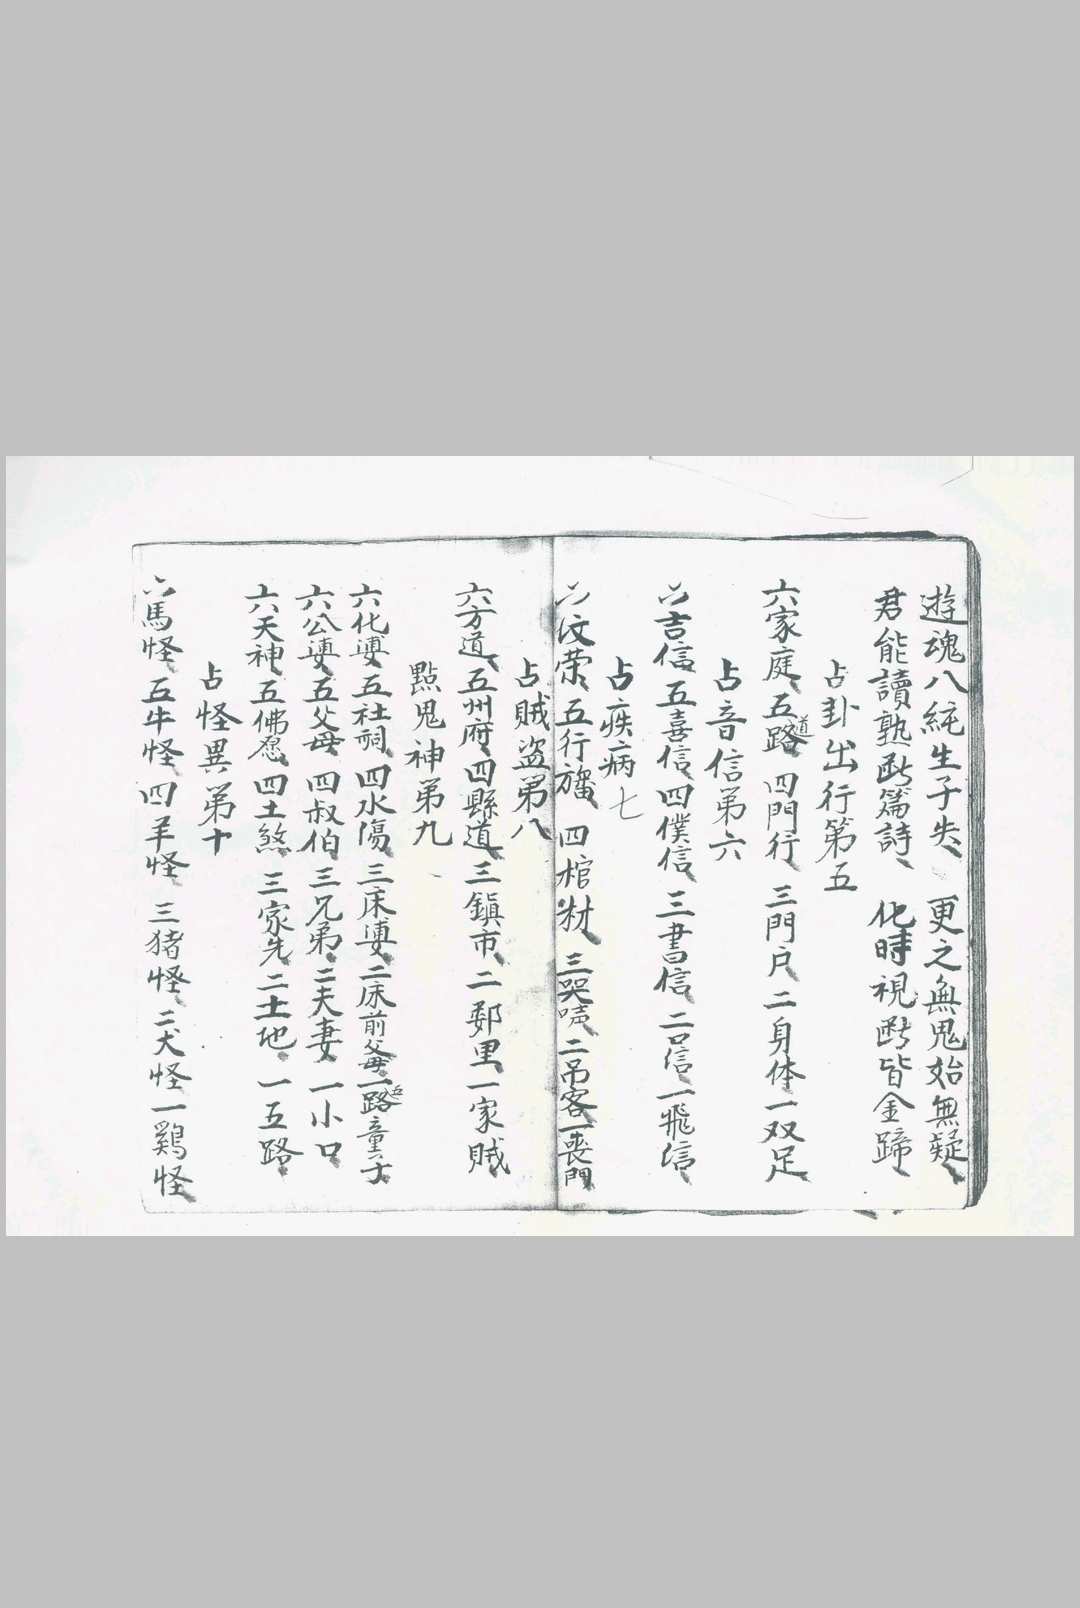 遊魂八純生子失 更之無鬼始無疑
君能讀熟断篇詩 化時視断皆金蹄
占卦出行第五
六家庭 五道路 四門行 三門户 二身体 一双足
占音信第六
六吉信 五喜信 四僕信 三書信 二口信 一飛信
占疾病七
六汶荣 五行旛 四棺材 三哭声 二吊客 一喪門
占賊盗第八
六方道 五州府 四縣道 三鎮市 二鄰里 一家賊
點鬼神第九
六化婆 五社祠 四水傷 三床婆 二床前父母 一五路童子
六公婆 五父母 四叔伯 三兄弟 二夫妻 一小口
六天神 五佛愿 四土煞 三家先 二土地 一五路
占怪異第十
六馬怪 五牛怪 四羊怪 三猪怪 二犬怪 一鷄怪